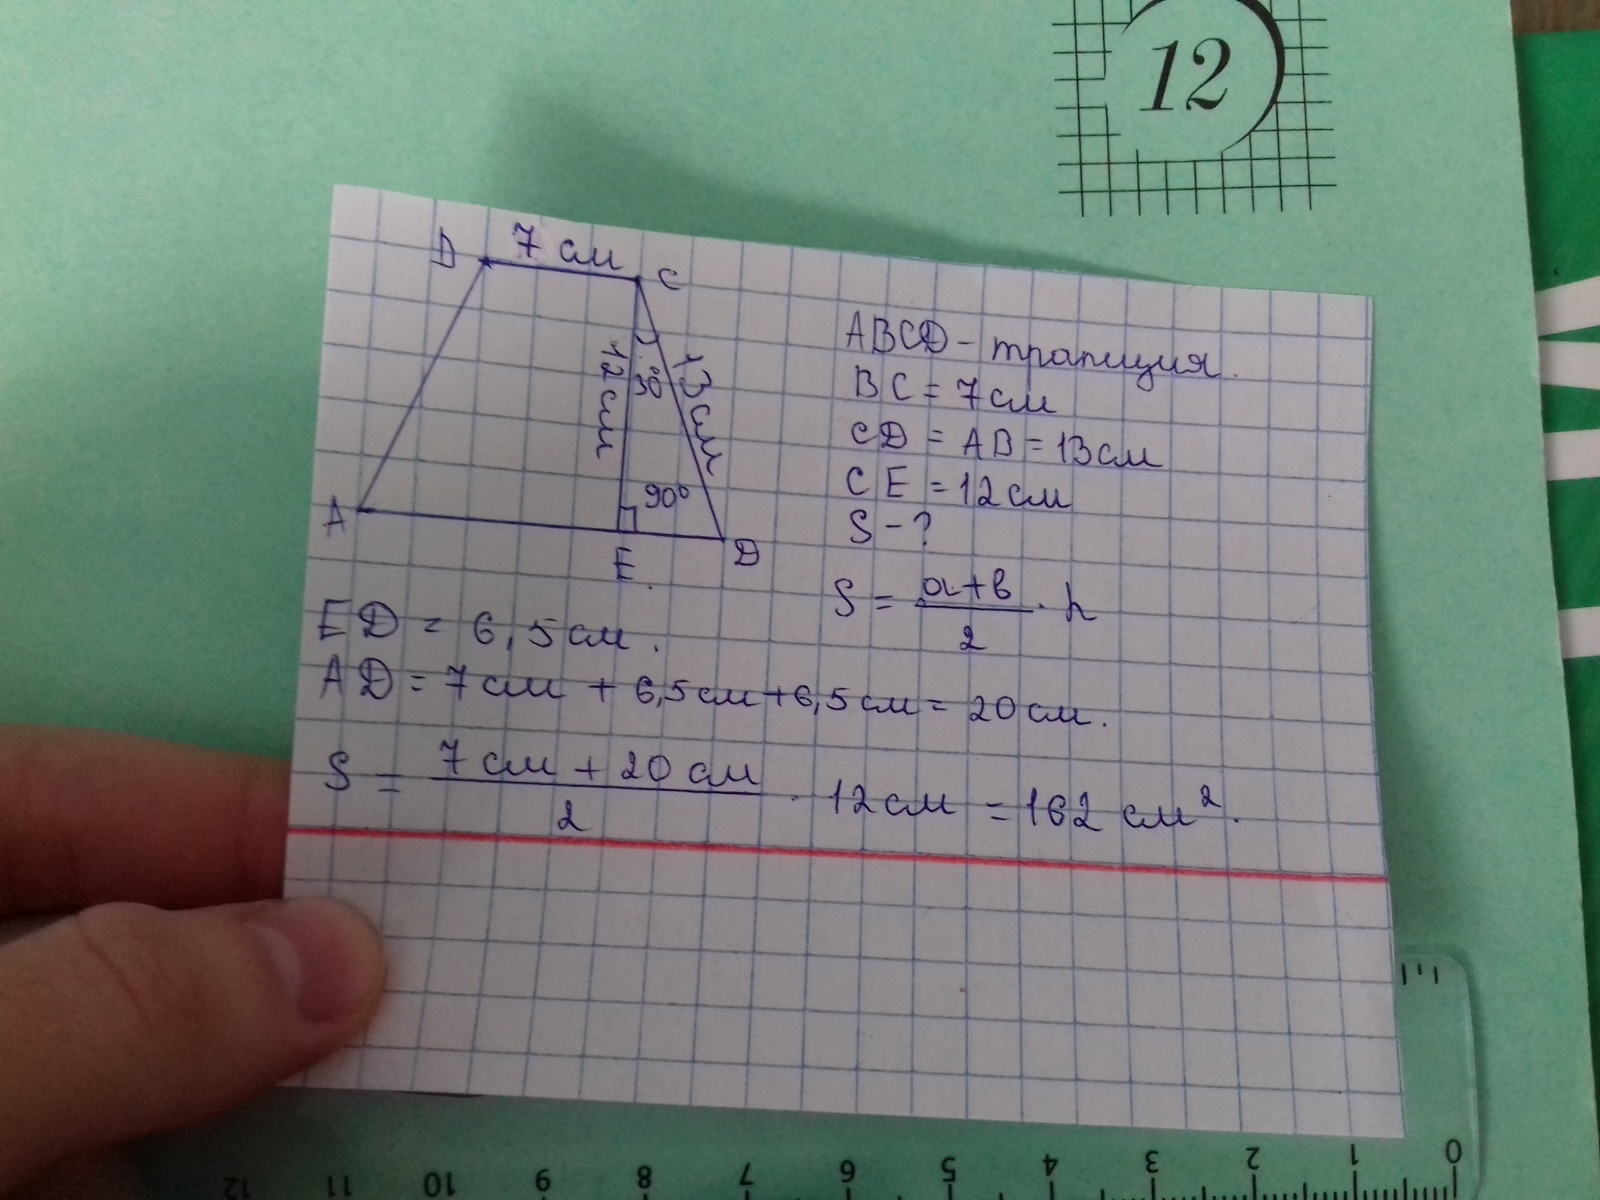 12
D 7 см C
12 см 30° 13 см
90°
A E. D
ABCD - трапиция.
BC = 7 см
CD = AB = 13 см
CE = 12 см
S - ?
S = a+b/2 · h
ED = 6,5 см.
AD = 7 см + 6,5 см + 6,5 см = 20 см.
S = 7 см + 20 см/2 · 12 см = 162 см².
12 11 10 9 8 7 6 5 4 3 2 1 0